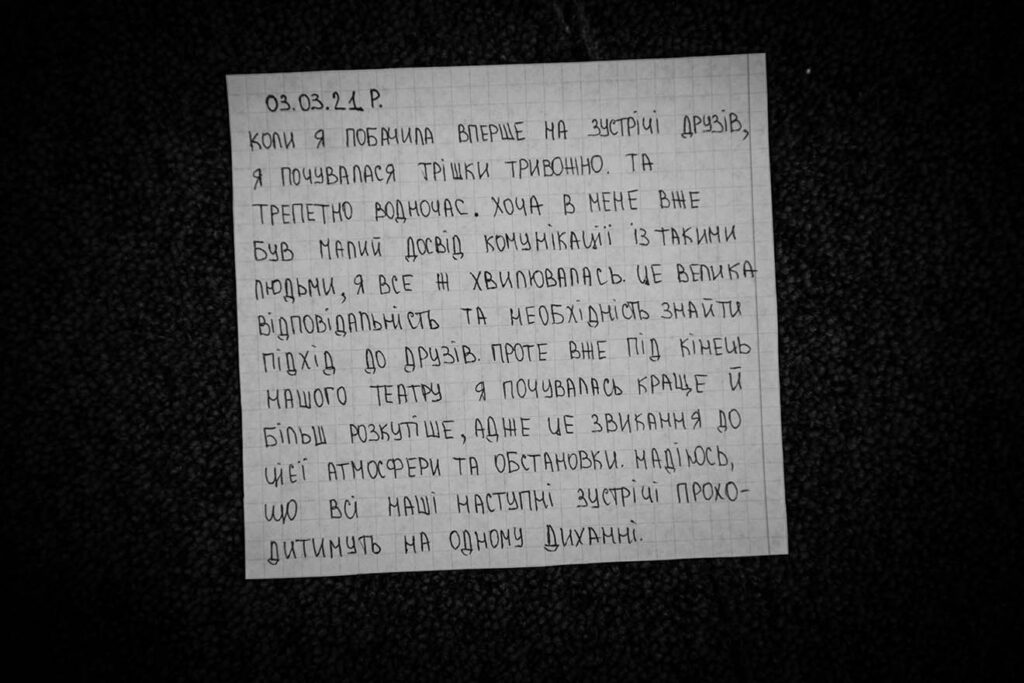 03.03.21 Р.
КОЛИ Я ПОБАЧИЛА ВПЕРШЕ НА ЗУСТРІЧІ ДРУЗІВ,
Я ПОЧУВАЛАСЯ ТРІШКИ ТРИВОЖНО. ТА
ТРЕПЕТНО ВОДНОЧАС. ХОЧА В МЕНЕ ВЖЕ
БУВ МАЛИЙ ДОСВІД КОМУНІКАЦІЇ ІЗ ТАКИМИ
ЛЮДЬМИ, Я ВСЕ Ж ХВИЛЮВАЛАСЬ. ЦЕ ВЕЛИКА
ВІДПОВІДАЛЬНІСТЬ ТА НЕОБХІДНІСТЬ ЗНАЙТИ
ПІДХІД ДО ДРУЗІВ. ПРОТЕ ВЖЕ ПІД КІНЕЦЬ
НАШОГО ТЕАТРУ Я ПОЧУВАЛАСЬ КРАЩЕ Й
БІЛЬШ РОЗКУТІШЕ, АДЖЕ ЦЕ ЗВИКАННЯ ДО
ЦІЄЇ АТМОСФЕРИ ТА ОБСТАНОВКИ. НАДІЮСЬ,
ЩО ВСІ НАШІ НАСТУПНІ ЗУСТРІЧІ ПРОХО-
ДИТИМУТЬ НА ОДНОМУ ДИХАННІ.